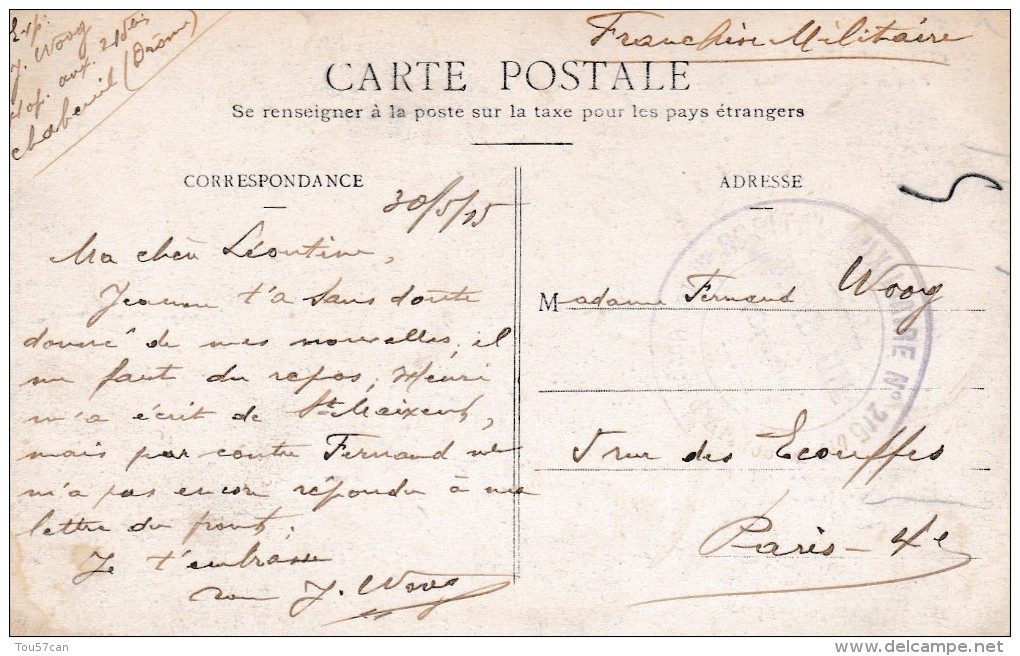 Exp:
J. Woog
hop. aux. 210bis
chabeuil (Drôme)
Franchise Militaire
CARTE POSTALE
Se renseigner à la poste sur la taxe pour les pays étrangers
CORRESPONDANCE
30/5/15
Ma chère Léontine,
Jeanne t'a sans doute
donné de mes nouvelles, il
me faut du repos, Henri
m'a écrit de St Maixent,
mais par contre Fernand ne
m'a pas encore répondu à ma
lettre du front.
Je t'embrasse
J. Woog
ADRESSE
Madame Fernand Woog
5 rue des Ecouffes
Paris - 4e
AUXILIAIRE No 210
Tou57can
www.delcampe.net